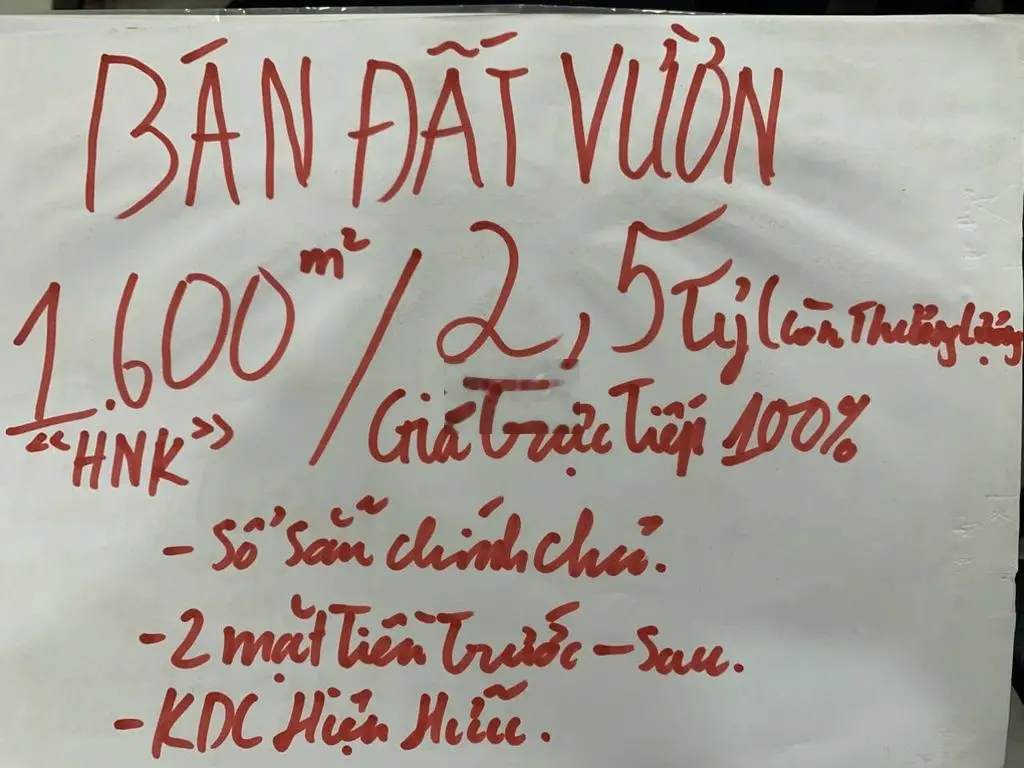 BÁN ĐẤT VƯỜN
1.600 m² / 2,5 Tỷ (còn Thương Lượng
"HNK" Giá Trực Tiếp 100%
- Sổ sẵn chính chủ.
- 2 mặt Tiền Trước - Sau.
- KDC Hiện Hữu.